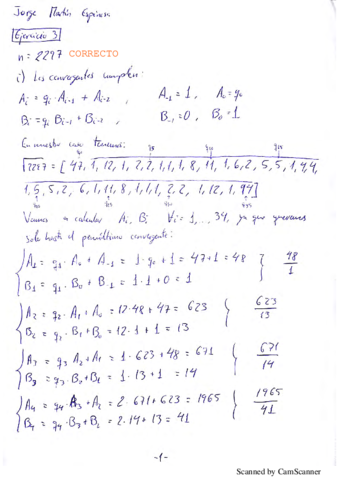 Jorge Martín Espinosa
Ejercicio 3
n = 2297 CORRECTO
i) Los convergentes cumplen:
Ai = qi · Ai-1 + Ai-2 , A-1 = 1 , A0 = q0
Bi = qi Bi-1 + Bi-2 , B-1 = 0 , B0 = 1
En nuestro caso tenemos:
√2297 = [47, 1, 12, 1, 2, 2, 1, 1, 1, 8, 11, 1, 6, 2, 5, 5, 1, 4, 4,
1, 5, 5, 2, 6, 1, 11, 8, 1, 1, 1, 2, 2, 1, 12, 1, 94]
Vamos a calcular Ai, Bi ∀i = 1, ..., 34, ya que queremos
solo hasta el penúltimo convergente:
A1 = q1 · A0 + A-1 = 1 · q0 + 1 = 47 + 1 = 48
B1 = q1 · B0 + B-1 = 1 · 1 + 0 = 1
48/1
A2 = q2 · A1 + A0 = 12 · 48 + 47 = 623
B2 = q2 · B1 + B0 = 12 · 1 + 1 = 13
623/13
A3 = q3 A2 + A1 = 1 · 623 + 48 = 671
B3 = q3 · B2 + B1 = 1 · 13 + 1 = 14
671/14
A4 = q4 · A3 + A2 = 2 · 671 + 623 = 1965
B4 = q4 · B3 + B2 = 2 · 14 + 13 = 41
1965/41
-1-
Scanned by CamScanner